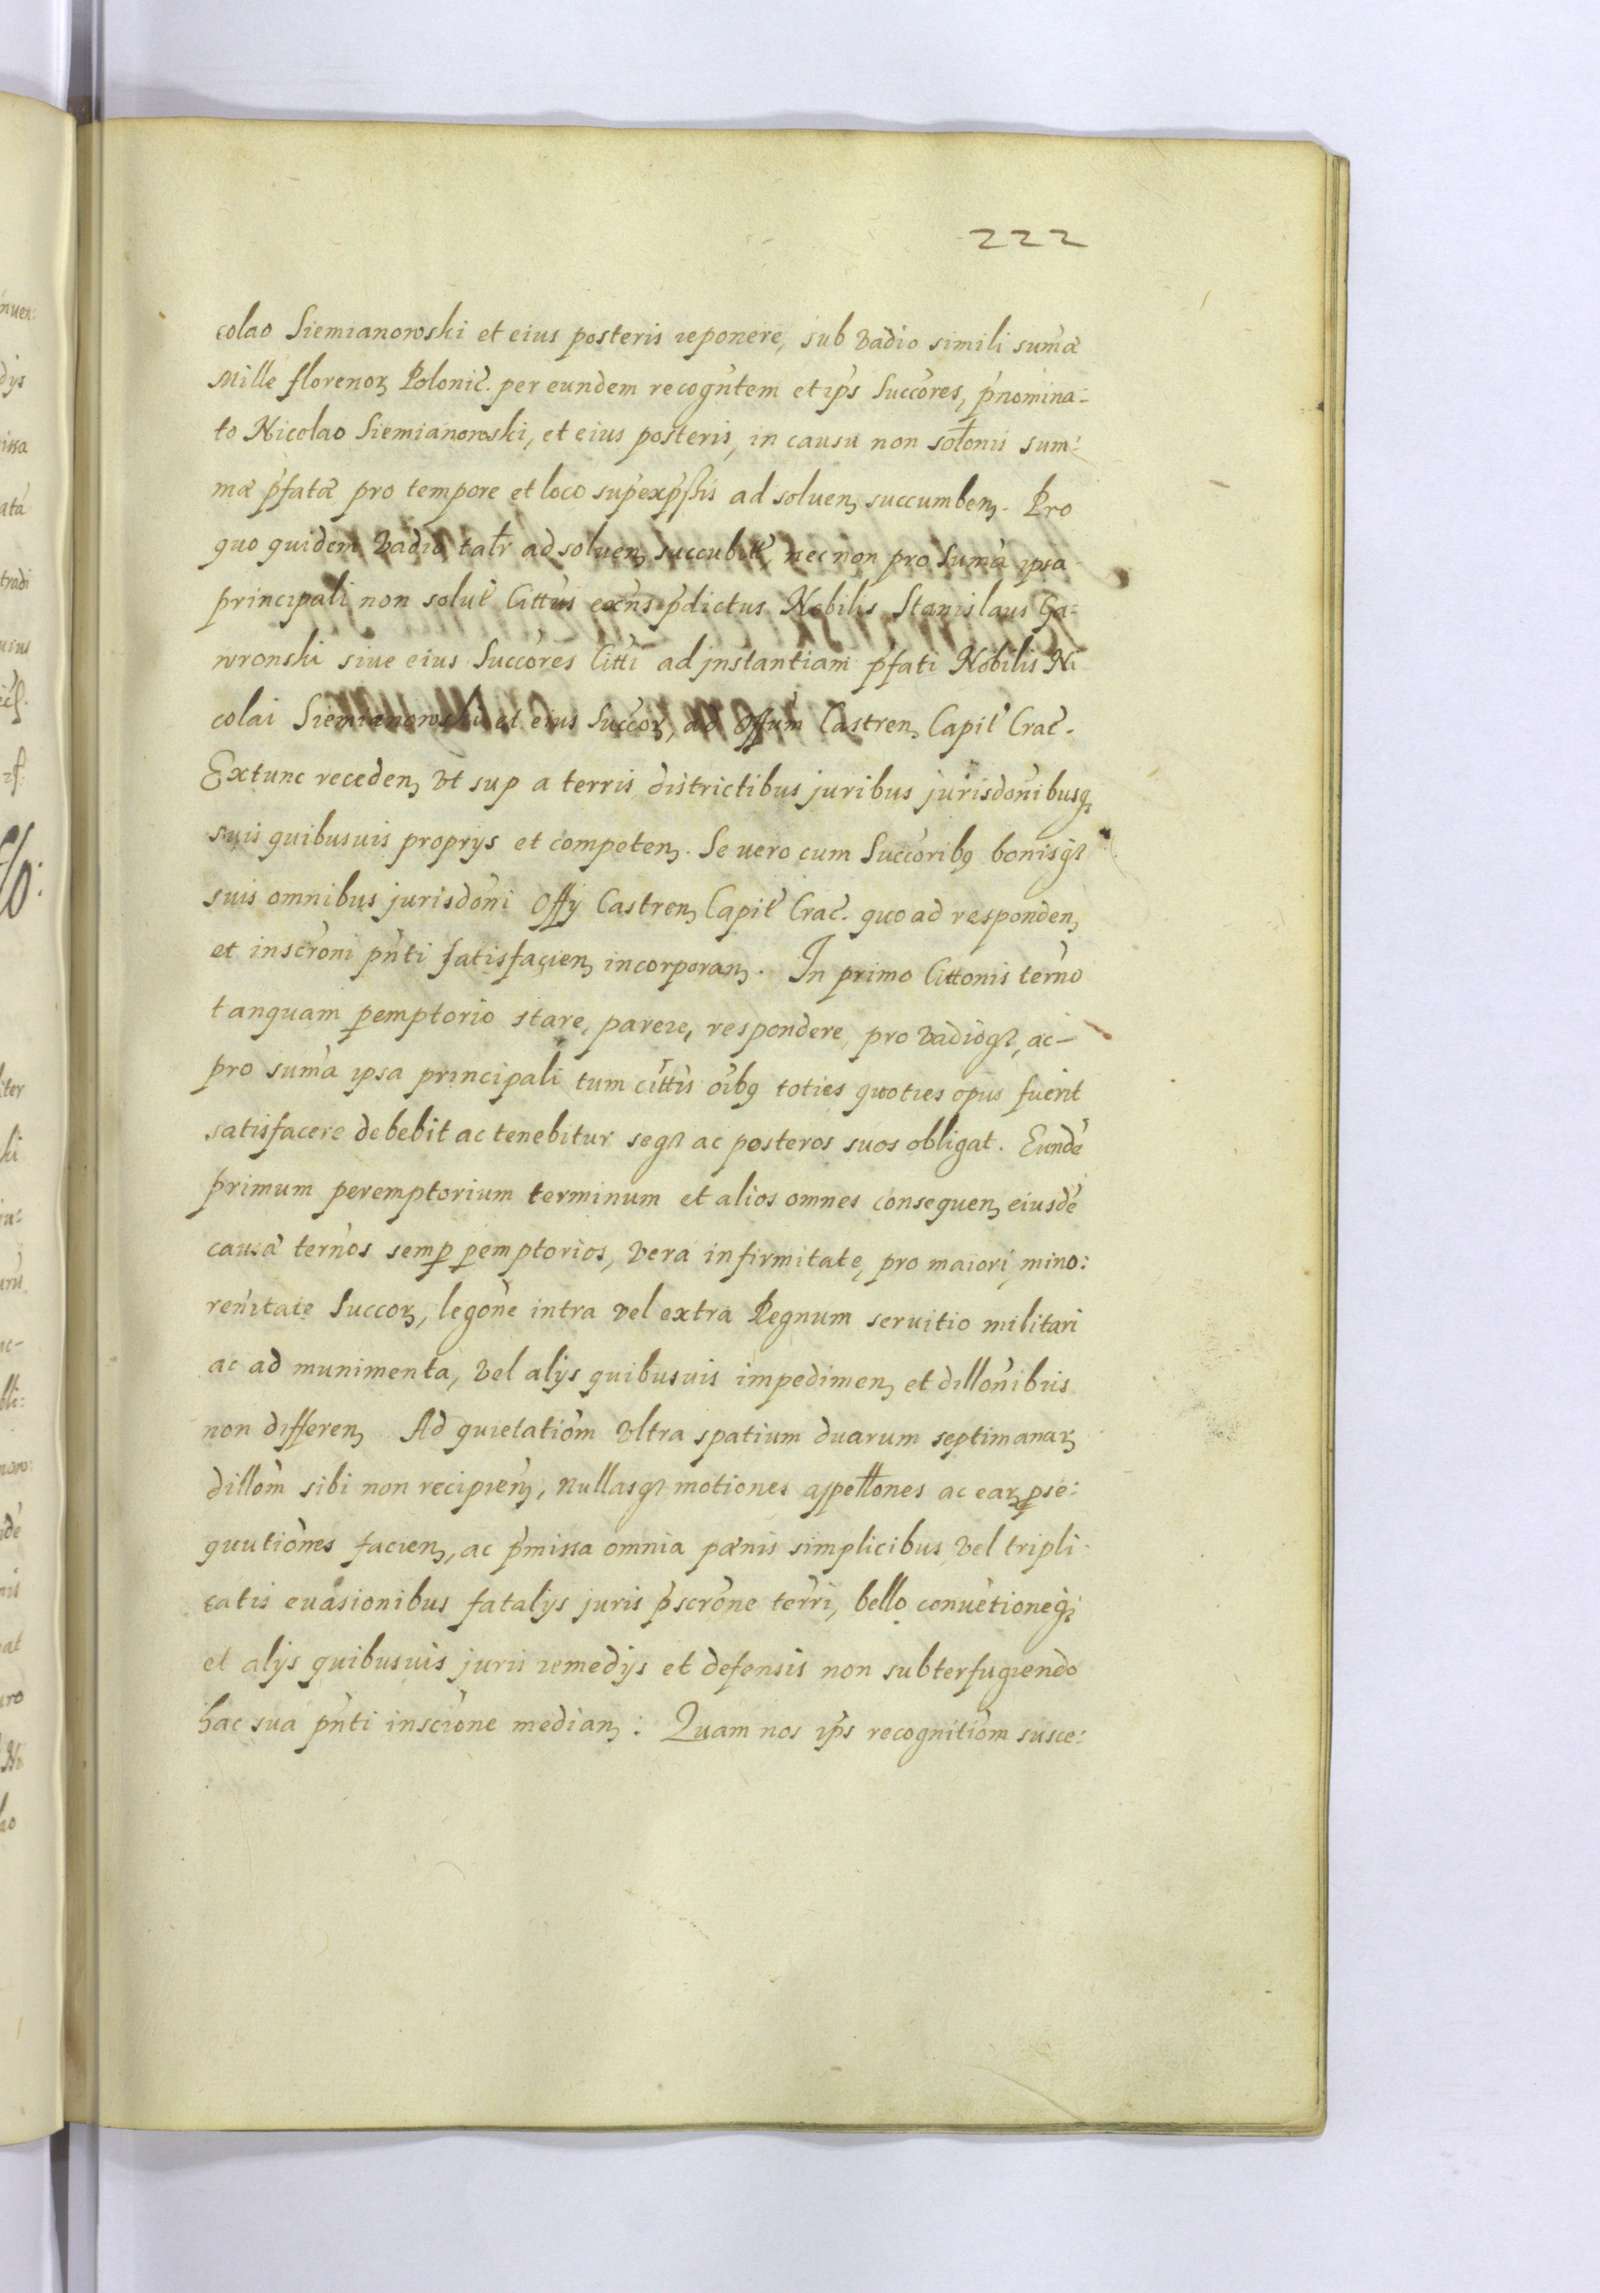 222
colao Siemianowski et eius posteris reponere, sub vadio simili sum̃æ
Mille florenoꝝ Polonic̃. per eundem recogñtem et ip̃s Succ̃ores, p̃nomina-
to Nicolao Siemianowski, et eius posteris, in causu non sol̃onis sum:
mæ p̃fatæ pro tempore et loco sup̃exp̃ssis ad soluenꝫ succumbenꝫ. Pro
quo quidem vadio tal̃r ad soluenꝫ succubit̃, nec non pro Sum̃a ipsa
principali non solut̃ Citt̃us exñs p̃dictus Nobilis Stanislaus Ga-
wronski siue eius Succ̃ores Citt̃i ad jnstantiam p̃fati Nobilis Ni
colai Siemianowski et eius Succ̃oꝝ, ad Off̃um Castrenꝫ Capit̃ Crac̃.
Extunc recedenꝫ vt sup a terris districtibus juribus jurisdoñibusqꝫ
suis quibusuis proprijs et competenꝫ. Se uero cum Succ̃oribꝫ bonisqꝫ
suis omnibus jurisdõni Offĳ Castrenꝫ Capit̃ Crac̃. quo ad respondenꝫ
et inscr̃oni p̃nti satisfacienꝫ incorporanꝫ. In primo Citt̃onis ter̃no
tanquam ꝑemptorio stare, parere, respondere, pro vadioqꝫ, ac-
pro sum̃a ipsa principali tum citt̃is oĩbꝫ toties quoties opus fuerit
satisfacere debebit ac tenebitur seqꝫ ac posteros suos obligat. Eundẽ
primum peremptorium terminum et alios omnes consequenꝫ eiusdẽ
causæ ter̃nos semꝑ ꝑemptorios, vera infirmitate, pro maiori, mino:
reñitate Succoꝝ, legõne intra vel extra Regnum seruitio militari
ac ad munimenta, vel alijs quibusuis impedimenꝫ et dillõnibus
non differenꝫ Ad quietatiõm vltra spatium duarum septimanaꝝ
dillõm sibi non recipienꝫ, nullasqꝫ motiones appell̃ones ac eaꝝ ꝑse:
quutiones facienꝫ, ac p̃missa omnia pænis simplicibus vel tripli-
catis euasionibus fatalijs juris p̃scr̃one ter̃ri, bello conuẽtioneqꝫ
et alijs quibusuis juris remedijs et defensis non subterfugiendo
hac sua p̃nti inscr̃one medianꝫ: Quam nos ip̃s recognitiõm susce: